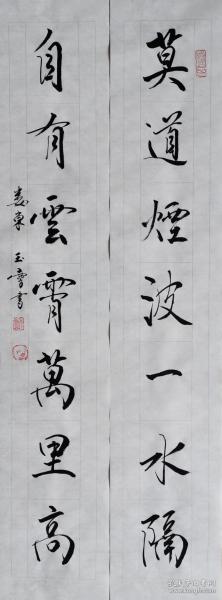 莫道煙波一水隔
自有雲霄萬里高
婁東
玉書